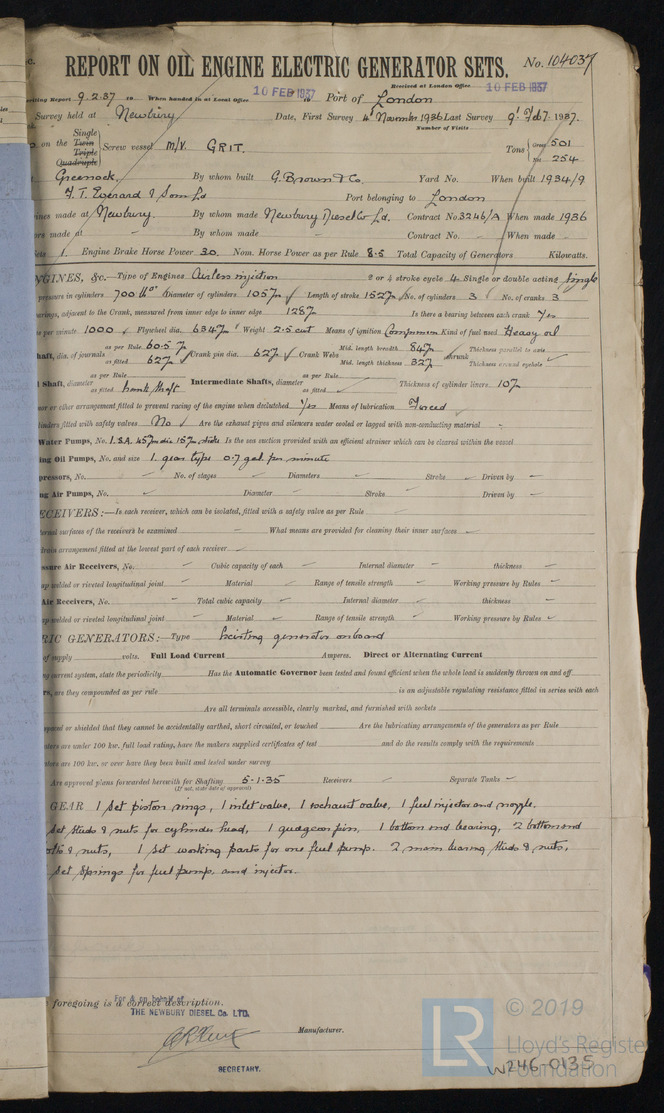 REPORT ON OIL ENGINE ELECTRIC GENERATOR SETS. No. 104037
Received at London Office
writing Report 9.2.37 When handed in at Local Office 10 FEB 1937 Port of London 10 FEB 1937
Survey held at Newbury Date, First Survey 4th November 1936 Last Survey 9th Feb 1937.
Number of Visits
on the Single Twin Triple Quadruple Screw vessel m/v. GRIT. Tons Gross 501 Net 254
Greenock. By whom built G. Brown & Co. Yard No. When built 1934/9
F. T. Everard & Sons Ld Port belonging to London
ines made at Newbury. By whom made Newbury Diesel Co Ld. Contract No. 3246/A When made 1936
ors made at — By whom made — Contract No. — When made —
Sets 1. Engine Brake Horse Power 30. Nom. Horse Power as per Rule 8.5 Total Capacity of Generators Kilowatts.
NGINES, &c.—Type of Engines Airless injection 2 or 4 stroke cycle 4 Single or double acting Single
pressure in cylinders 700 lbs Diameter of cylinders 105 Length of stroke 152 No. of cylinders 3 No. of cranks 3
earings, adjacent to the Crank, measured from inner edge to inner edge 128 Is there a bearing between each crank Yes
s per minute 1000 Flywheel dia. 634 Weight 2.5 cwt Means of ignition Compression Kind of fuel used Heavy oil
haft, dia. of journals as per Rule 60.5 as fitted 62 Crank pin dia. 62 Crank Webs Mid. length breadth 84 Mid. length thickness 32 shrunk Thickness parallel to axis Thickness around eyehole
l Shaft, diameter as per Rule as fitted Intermediate Shafts, diameter as per Rule as fitted Thickness of cylinder liners 10
nor or other arrangement fitted to prevent racing of the engine when declutched Yes Means of lubrication Forced
linders fitted with safety valves No Are the exhaust pipes and silencers water cooled or lagged with non-conducting material -
Water Pumps, No. 1. S.A. 45 dia 15 stroke Is the sea suction provided with an efficient strainer which can be cleared within the vessel
ing Oil Pumps, No. and size 1. gear type 0.7 gal. per minute
pressors, No. — No. of stages — Diameters — Stroke — Driven by —
ng Air Pumps, No. — Diameter — Stroke — Driven by —
ECEIVERS:—Is each receiver, which can be isolated, fitted with a safety valve as per Rule —
ternal surfaces of the receivers be examined — What means are provided for cleaning their inner surfaces —
drain arrangement fitted at the lowest part of each receiver —
ssure Air Receivers, No. — Cubic capacity of each — Internal diameter — thickness —
ap welded or riveted longitudinal joint — Material — Range of tensile strength — Working pressure by Rules —
Air Receivers, No. — Total cubic capacity — Internal diameter — thickness —
ap welded or riveted longitudinal joint — Material — Range of tensile strength — Working pressure by Rules —
RIC GENERATORS:—Type Existing generator onboard
of supply volts. Full Load Current Amperes. Direct or Alternating Current
ng current system, state the periodicity Has the Automatic Governor been tested and found efficient when the whole load is suddenly thrown on and off
rs, are they compounded as per rule is an adjustable regulating resistance fitted in series with each
Are all terminals accessible, clearly marked, and furnished with sockets
spaced or shielded that they cannot be accidentally earthed, short circuited, or touched Are the lubricating arrangements of the generators as per Rule
ators are under 100 kw. full load rating, have the makers supplied certificates of test and do the results comply with the requirements
ators are 100 kw. or over have they been built and tested under survey
Are approved plans forwarded herewith for Shafting 5-1-35 Receivers — Separate Tanks —
(If not, state date of approval)
GEAR 1 Set piston rings, 1 inlet valve, 1 exhaust valve, 1 fuel injector and nozzle.
set studs & nuts for cylinder head, 1 gudgeon pin, 1 bottom end bearing, 2 bottom end
olts & nuts, 1 set working parts for one fuel pump. 2 main bearing studs & nuts,
set Springs for fuel pump, and injector.
foregoing is a correct description.
For & on behalf of
THE NEWBURY DIESEL Co. LTD.
Manufacturer.
SECRETARY.
© 2019
LR Lloyd's Register
Foundation
W246-0135